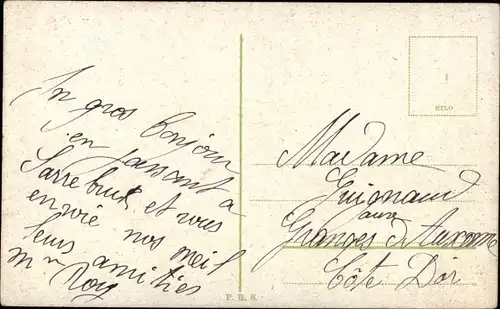 Un gros bonjour
en passant à
Sarrebruck et vous
envoie nos meil
leurs amitiés
Mme Roy
HYLO
Madame
Guignaud
aux
Granges d'Auxonne
Côte D'or
P. R. S.